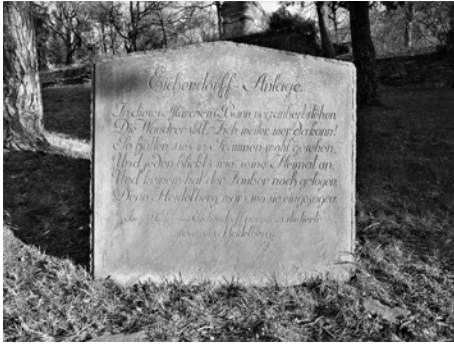 Eichendorff-Anlage.
In dieses Märchens Bann verzaubert stehen
Die Wandrer still. – Zieh weiter, wer da kann!
So hatten sie's in Träumen wohl gesehen,
Und jeden blickt's wie seine Heimat an,
Und keinem hat der Zauber noch gelogen,
Denn Heidelberg war's, wo sie eingezogen.
Eichendorff studierte
Heidelberg.